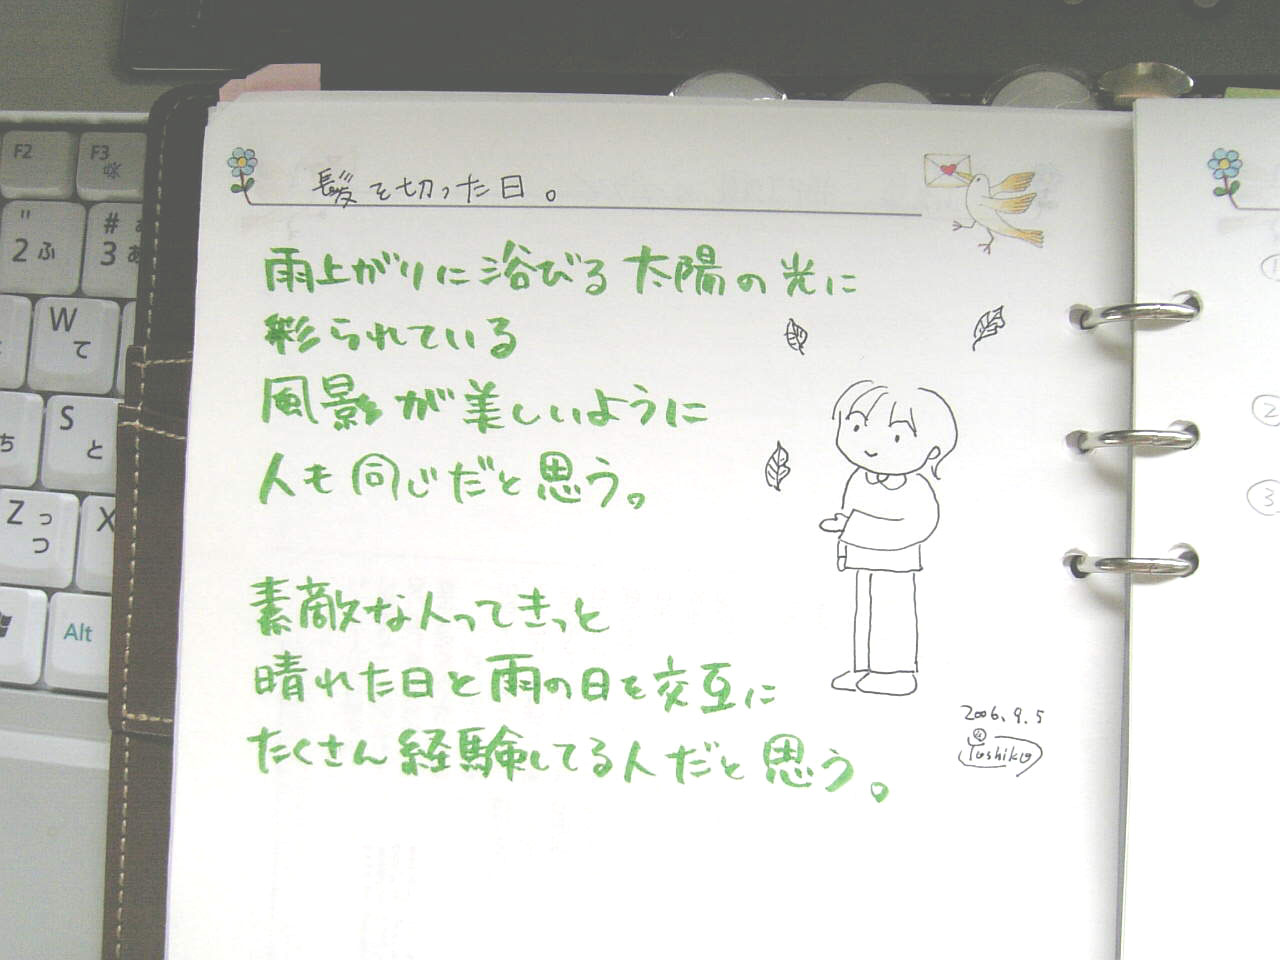 髪を切った日。
雨上がりに浴びる太陽の光に
彩られている
風景が美しいように
人も同じだと思う。
素敵な人ってきっと
晴れた日と雨の日を交互に
たくさん経験してる人だと思う。
2006.9.5
Yoshiko
F2
F3
" 2 ふ
# 3 あ
W て
S と
Z っ つ
X
Alt
ち
1
2
3